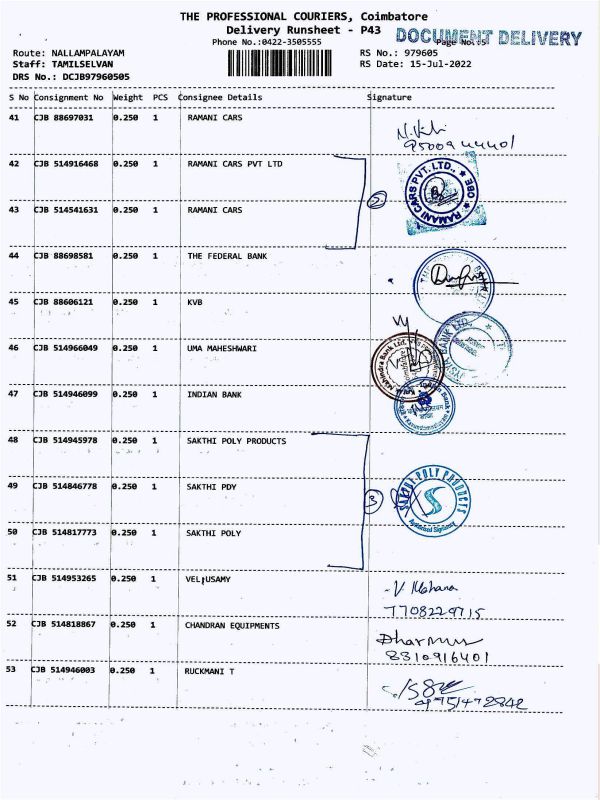 THE PROFESSIONAL COURIERS, Coimbatore
Delivery Runsheet - P43
DOCUMENT DELIVERY
Phone No.:0422-3505555
Page No.:5
Route: NALLAMPALAYAM
RS No.: 979605
Staff: TAMILSELVAN
RS Date: 15-Jul-2022
DRS No.: DCJB97960505
S No Consignment No Weight PCS Consignee Details Signature
41 CJB 88697031 0.250 1 RAMANI CARS
42 CJB 514916468 0.250 1 RAMANI CARS PVT LTD
RAMANI CARS PVT. LTD., ★ CBE ★
43 CJB 514541631 0.250 1 RAMANI CARS
44 CJB 88698581 0.250 1 THE FEDERAL BANK
45 CJB 88606121 0.250 1 KVB
46 CJB 514966049 0.250 1 UMA MAHESHWARI
Mahindra Bank Ltd.
47 CJB 514946099 0.250 1 INDIAN BANK
48 CJB 514945978 0.250 1 SAKTHI POLY PRODUCTS
49 CJB 514846778 0.250 1 SAKTHI PDY
3
SAKTHI POLY PRODUCTS
Authorised Signatory
50 CJB 514817773 0.250 1 SAKTHI POLY
51 CJB 514953265 0.250 1 VELUSAMY
V. Mohana
7708229715
52 CJB 514818867 0.250 1 CHANDRAN EQUIPMENTS
8310916401
53 CJB 514946003 0.250 1 RUCKMANI T
9751472842